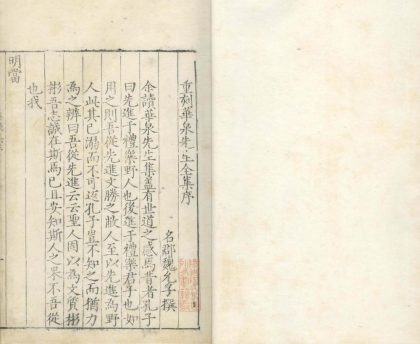 重刻華泉先生全集序
名郡魏允孚撰
余讀華泉先生集蓋有世道之感焉昔者孔子
曰先進于禮樂野人也後進于禮樂君子也如
用之則吾從先進文勝之敝人至以先進為野
人此其已溺而不可返孔子豈不知之而猶力
為之辨曰吾從先進云云聖人固以為文質彬
彬吾志誠在斯焉已且安知斯人之果不吾從
也哉
明當